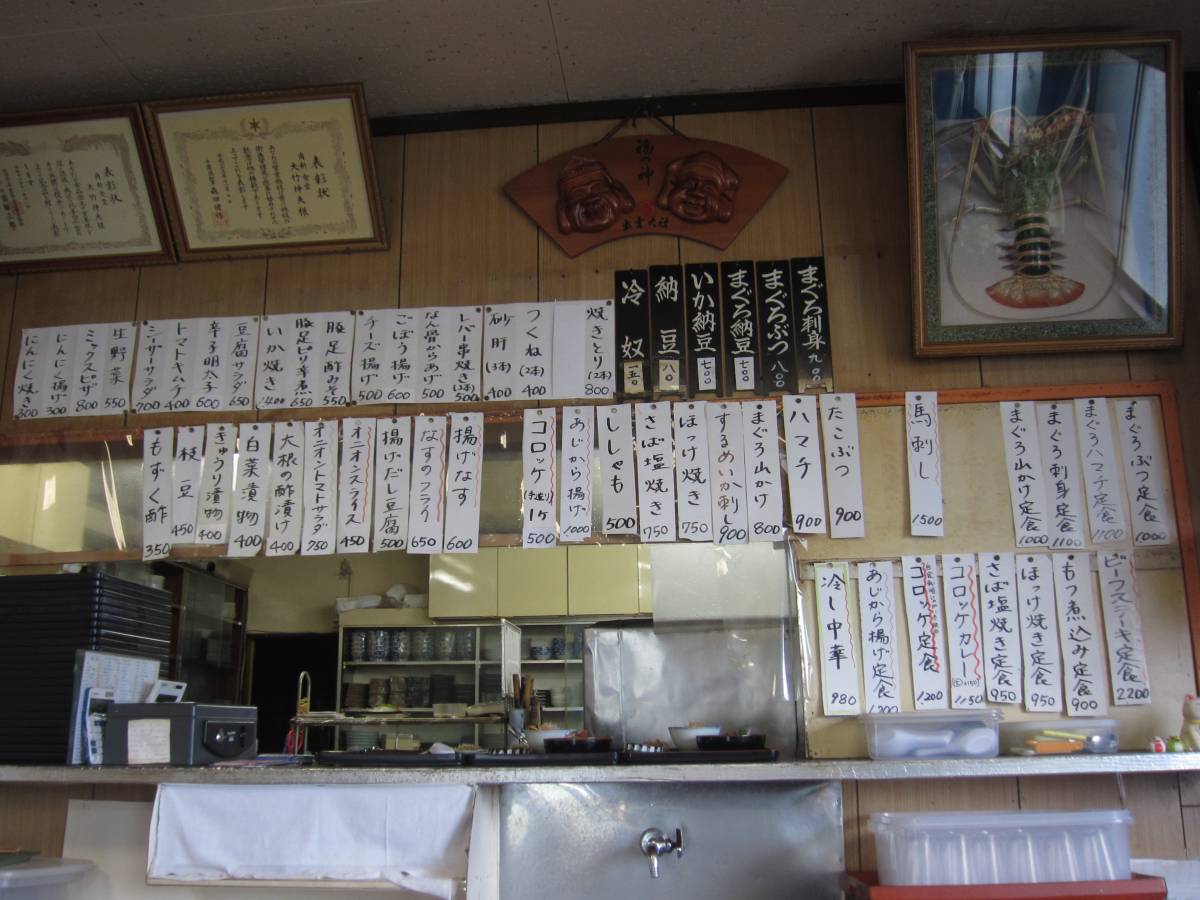 表彰状
大竹伸夫様
表彰状
角新食堂
大竹伸夫様
福の神
出雲大社
まぐろ刺身 九〇〇
まぐろぶつ 八〇〇
まぐろ納豆 七〇〇
いか納豆 七〇〇
納豆 一八〇
冷奴 一五〇
焼きとり(2本) 800
つくね(2本) 400
砂肝(3本) 400
レバー串焼き(2本) 500
なん骨からあげ 500
ごぼう揚げ 600
チーズ揚げ 500
豚足酢みそ 550
豚足ピリ辛煮 650
いか焼き 1400
豆腐サラダ 650
辛子明太子 600
トマトキムチ 400
シーザーサラダ 700
生野菜 550
ミックスピザ 800
にんにく揚げ 300
にんにく焼き 300
まぐろぶつ定食 1000
まぐろハマチ定食 1100
まぐろ刺身定食 1100
まぐろ山かけ定食 1000
馬刺し 1,500
たこぶつ 900
ハマチ 900
まぐろ山かけ 800
するめいか刺し 900
ほっけ焼き 750
さば塩焼き 750
ししゃも 500
あじから揚げ 1,000
コロッケ(手造り)1ヶ 500
揚げなす 600
なすのフライ 650
揚げだし豆腐 500
オニオンスライス 450
オニオントマトサラダ 750
大根の酢漬け 400
白菜漬物 400
きゅうり漬物 400
枝豆 450
もずく酢 350
ビーフステーキ定食 2200
もつ煮込み定食 900
ほっけ焼き定食 950
さば塩焼き定食 950
コロッケカレー 1150
コロッケ定食 1200
あじから揚げ定食 1200
冷し中華 980